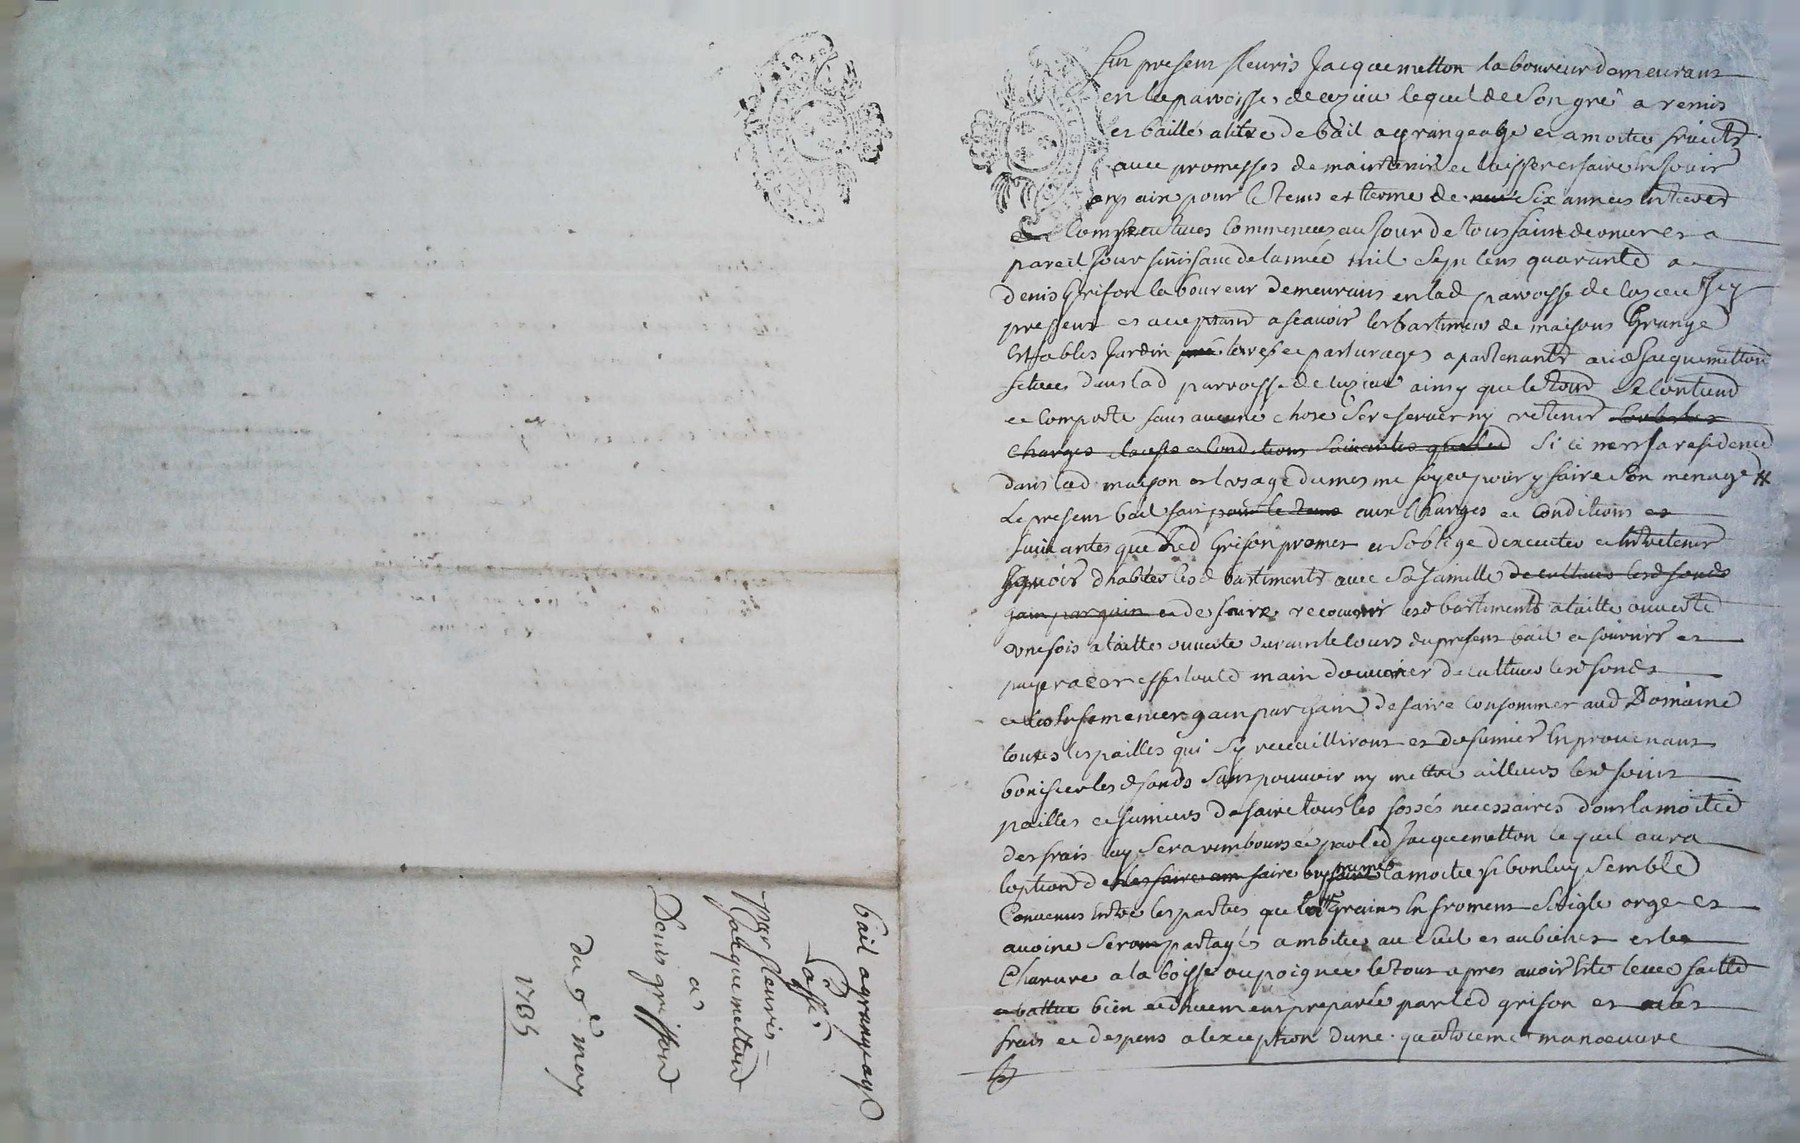 fut present fleuris Jacquemetton laboureur demeurant
en la parroisse de luzieu lequel de son gré a remis
et baillé a titre de bail a grangeage et a moitié fruictz
avec promesses de maintenir et laisser et faire Jouir
en paix pour le tems et terme de neuf six années entieres
et Consecutives commencées au Jour de toussaint dernier et a
pareil Jour finissant de lannée mil sept cens quarante a
denis Grison laboureur demeurant en lad parroisse de luzieu Icy
present et acceptant a scavoir les bastiments de maisons Grange
Estables Jardin terres et pasturages apartenants aud Jacquemetton
situés dans lad parroisse de luzieu ainsy que le tout se contient
et comporte sans aucune chose se reserver ny retenir
charges clauses et Conditions suivantes si ce nest sa residence
dans lad maison et lusage du mesme foyer pour y faire son menage
Le present bail fait pour le tems aux Charges et Conditions et
suivantes que led Grison promet et soblige dexecuter et Entretenir
scavoir dhabiter lesd bastiments avec sa famille de cultiver lesd fonds
gain par gain et de faire recouvrir lesd bastiments a taille ouverte
une fois a taille ouverte durant le cours du present bail et fournir et
payer a cet effet tout main douvrier de cultiver lesd fonds
et les Ensemencer gain par gain de faire consommer aud Domaine
toutes les pailles qui sy recueilliront et du fumier En provenant
bonifier lesd fonds sans pouvoir ny mettre ailleurs lesd foins
pailles et fumiers de faire tous les fossés necessaires dont la moitié
des frais luy sera remboursée par led Jacquemetton lequel aura
loption den faire la moitié si bon luy semble
Convenus Entre les parties que les Grains En froment seigle orge et
avoine seront partagés a moitié au sueil et au bichet et le
Chanvre a la boisse ou poignée le tout apres avoir Esté levée
a battue bien et duement preparée par led grison et a ses
frais et despens a lexception dune quatrieme manoeuvre
bail a grangeage
passé
par fleuris
Jacquemetton
a
Denis grisson
du 9e may
1735